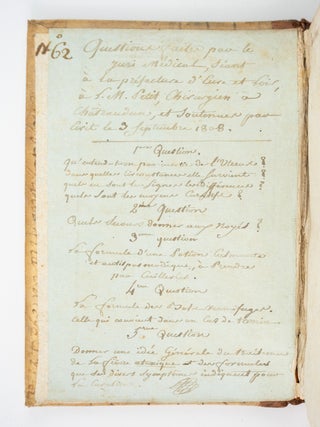 N° 62
Questions faites par le
jury Médical, Séant
à La préfecture d'Eure et Loir,
à S. M. Petit, Chirurgien à
Châteaudun, et Soutenues par
écrit le 3 Septembre 1808.
1ere Question.
qu'entend-on par de l'Uterus
dans quelles circonstances elle survient
quels en sont les Signes les différences
quels sont les moyens Curatifs ?
2eme Question
Quels secours donner aux Noyés ?
3eme question
La formule d'une Potion Calmante
et antispasmodique, à Prendre
par Cuillerées.
4eme Question
La formule des
Celle qui convient dans un Cas de
5eme Question
Donner une idée Générale du
de la fièvre et des formules
que ses divers Symptômes indiquent pour